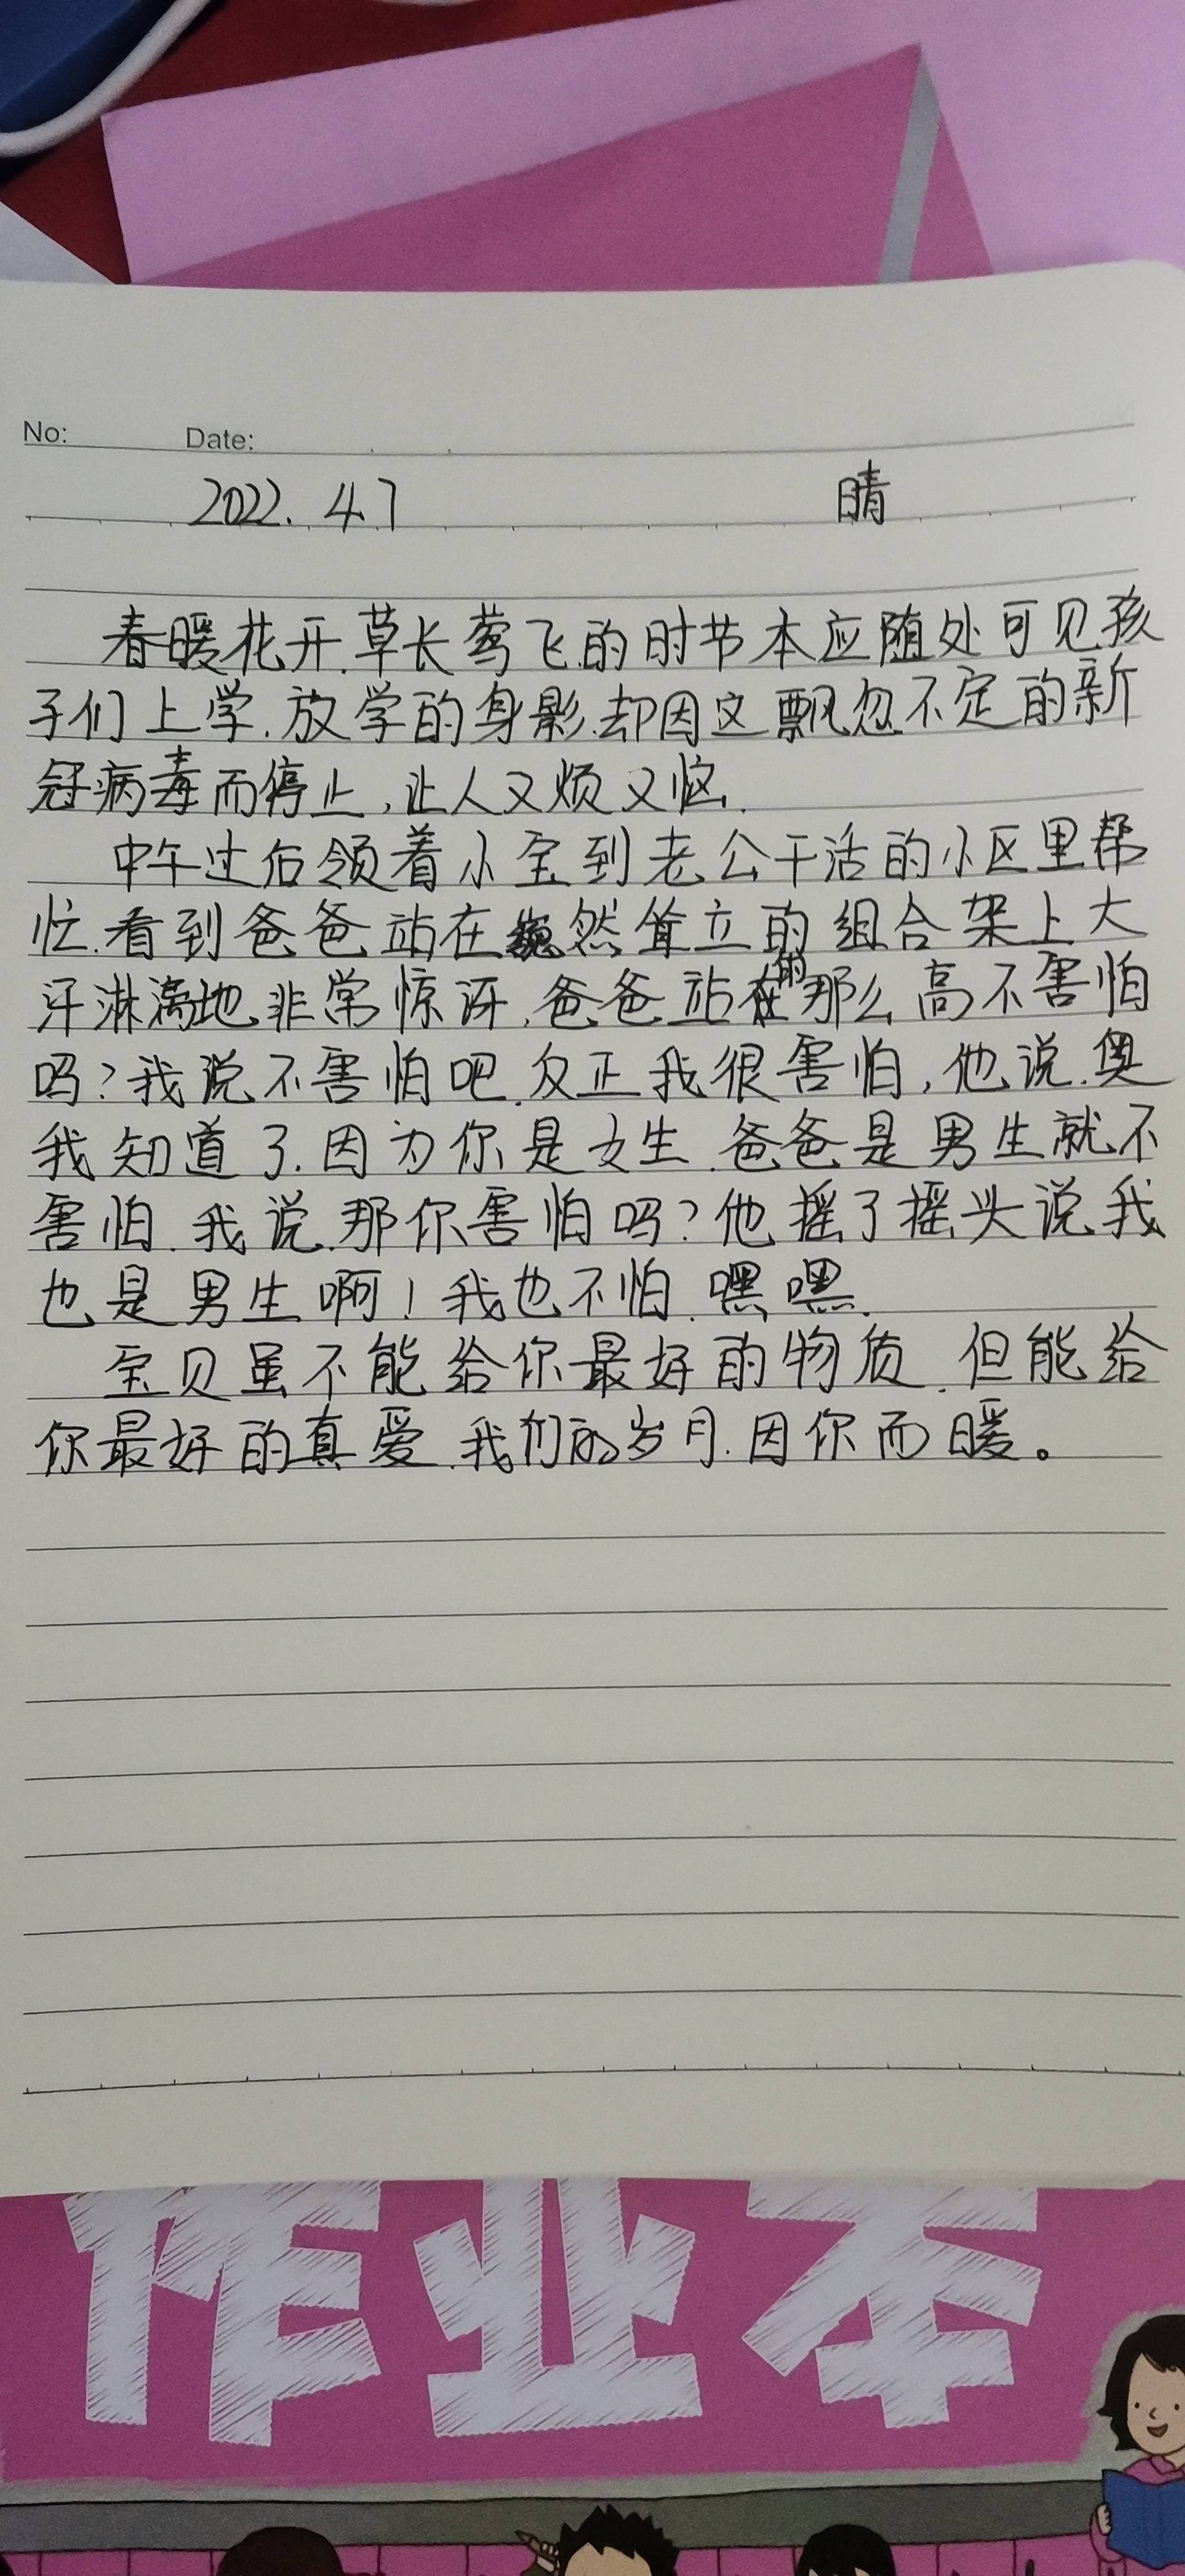 No: Date:
2022. 4.7 晴
春暖花开.草长莺飞.的时节本应随处可见孩
子们上学.放学的身影.却因这飘忽不定的新
冠病毒而停止,让人又烦又恼.
中午过后领着小宝到老公干活的小区里帮
忙.看到爸爸站在巍然耸立的组合架上大
汗淋漓地非常惊讶,爸爸站的那么高不害怕
吗?我说不害怕吧.反正我很害怕,他说.奥
我知道了.因为你是女生.爸爸是男生就不
害怕.我说.那你害怕吗?他摇了摇头说我
也是男生啊!我也不怕.嘿嘿.
宝贝虽不能给你最好的物质.但能给
你最好的真爱.我们的岁月.因你而暖。
作业本